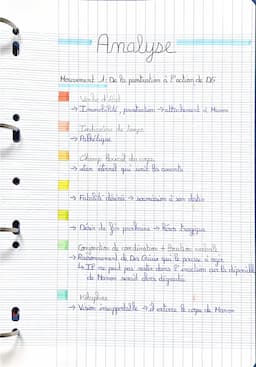 Analyse
Mouvement 1: De la prostration à l'action de DG
Verbe d'état
→ Immobilité, prostration → attachement à Manon
Indication de temps
→ Pathétique
Champ lexical du corps
→ lien éternel qui unit les amants
→ Fatalité désirée → soumission à son destin
→ Désir de fin prochaine → Héros tragique
Conjonction de coordination +
→ Raisonnement de Des Grieux qui le pousse à agir
↳ Il ne peut pas rester dans l'inaction car la dépouille
de Manon serait alors dégradée
Métaphore
→ Vision insupportable → il enterre le corps de Manon